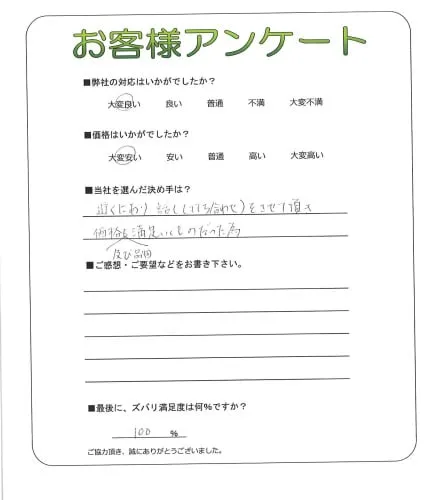 お客様アンケート
■弊社の対応はいかがでしたか?
大変良い 良い 普通 不満 大変不満
■価格はいかがでしたか?
大変安い 安い 普通 高い 大変高い
■当社を選んだ決め手は?
近くにあり 話し(打ち合わせ)をさせて頂き
価格も満足いくものだった為
及び品目
■ご感想・ご要望などをお書き下さい。
■最後に、ズバリ満足度は何%ですか?
100 %
ご協力頂き、誠にありがとうございました。